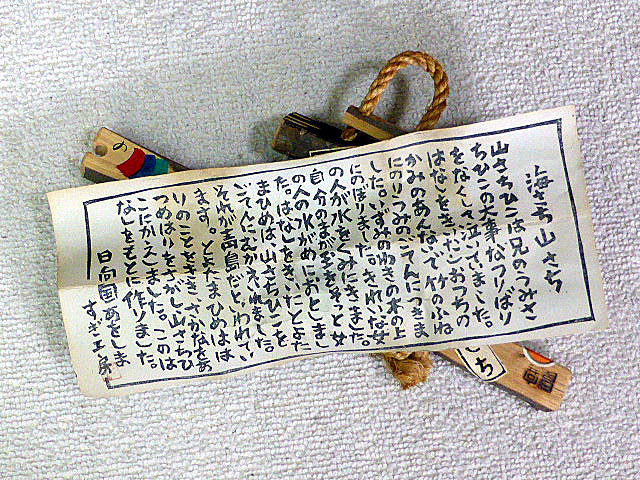 海さち山さち
山さちひこは兄のうみさ
ちひこの大事なつりばり
をなくして泣いていました。
はなしをきいたしおつちの
かみのあんないで竹のふね
にのりつみのごてんにつきま
した。いずみのわきの木の上
にのぼりまつた。きれいな女
の人が水をくみにきました
自分のまがたまをそっと女
の人の水がめにおとしまし
た。はなしをきいたとよた
まひめは、山さちひこを
ごてんにむかえいれました。
それが青島だといわれてい
ます。とよたまひめはは
りのことをきき、さかなをあ
つめはりをさがし山さちひ
こにかえしました。このは
なしをもとに作りました。
日向国あをしま
すぎ工房
の
ち